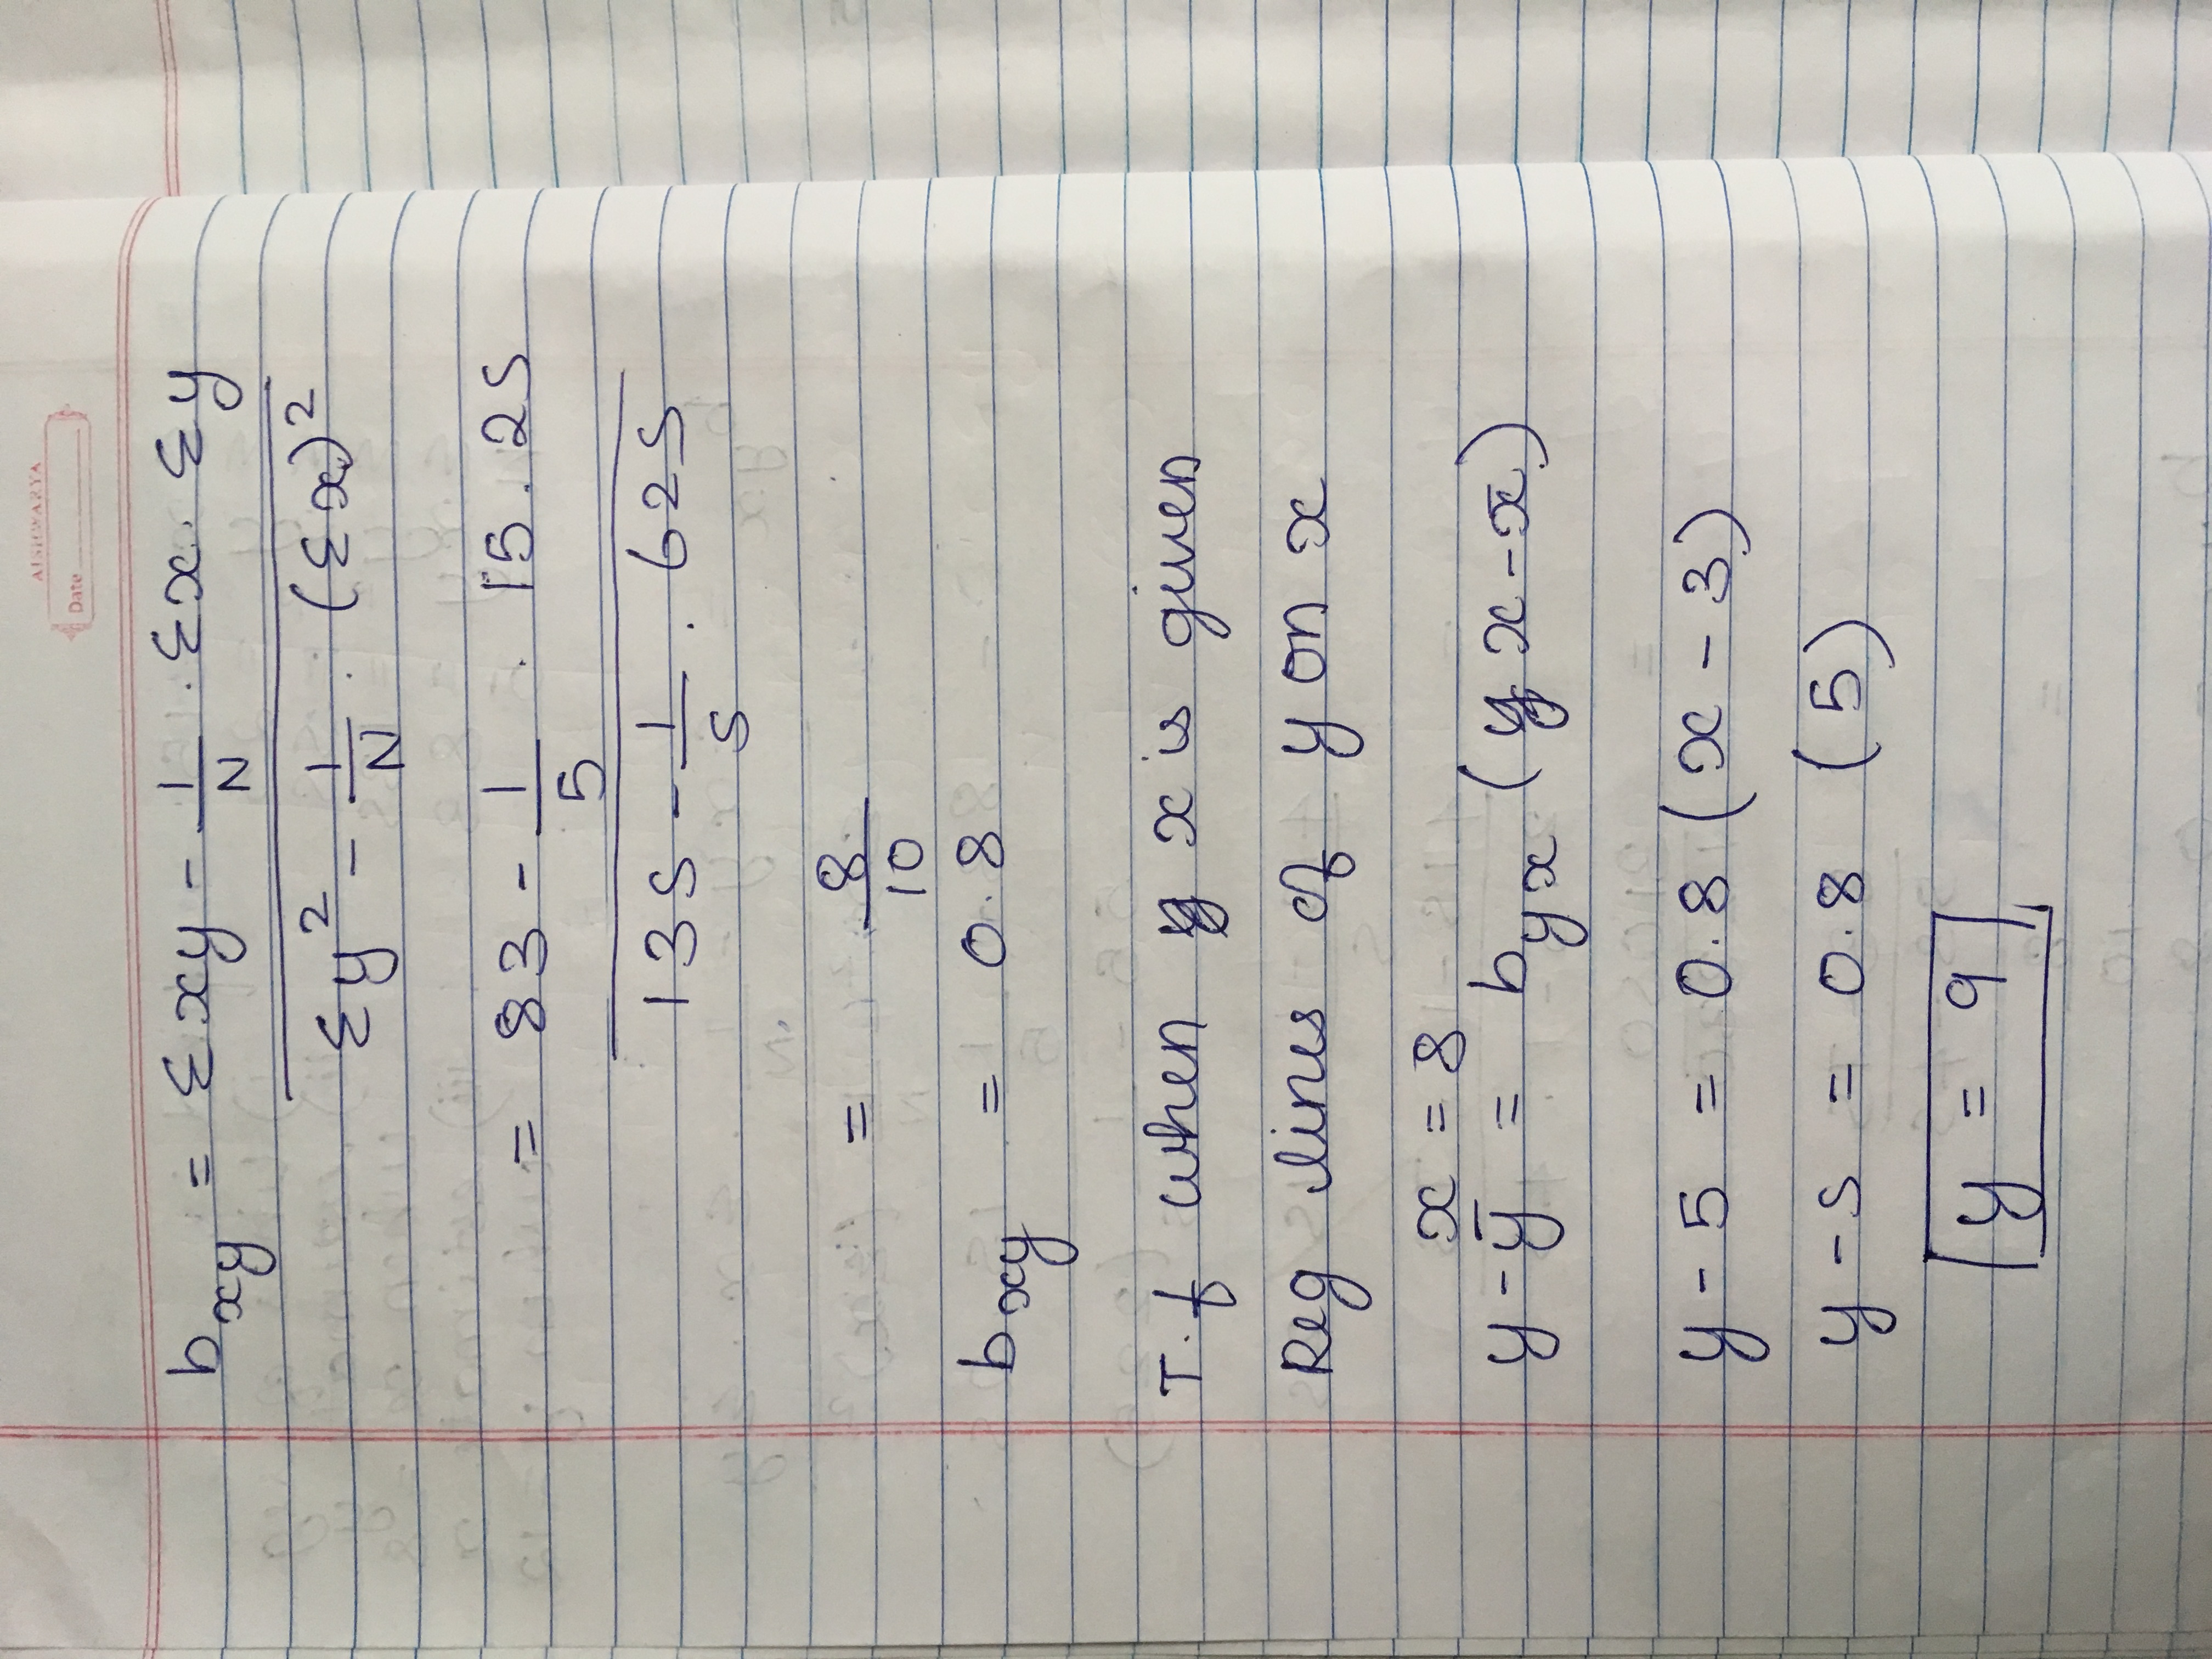 AISHWARYA
Date
b_xy = Σxy - 1/N · Σx · Σy
Σy² - 1/N · (Σx)²
= 83 - 1/5 · 15 . 25
135 - 1/5 . 625
= 8/10
b_xy = 0.8
T.f when x is given
Reg lines of y on x
x = 8
y - ȳ = b_yx (x - x̄)
y - 5 = 0.8 (x - 3)
y - 5 = 0.8 (5)
y = 9